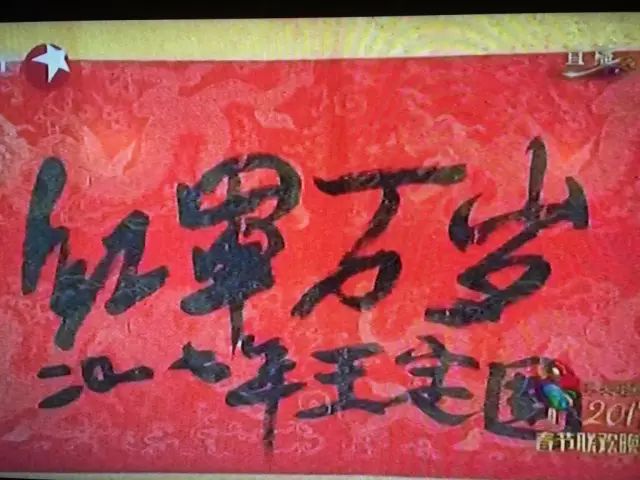 直播
红军万岁
二〇一七年王定国
201
春节联欢晚